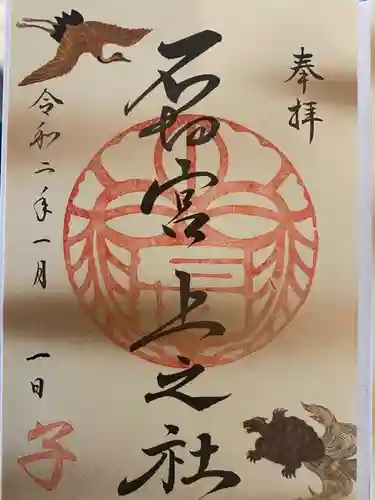 奉拝
石切宮上之社
令和二年一月一日
子